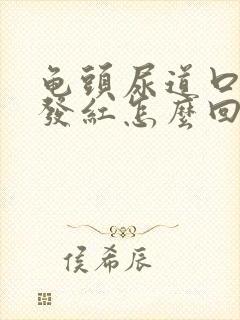 龟頭尿道口
發紅怎麼回
侯希辰